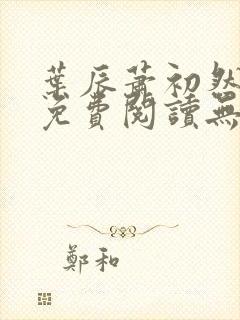 葉辰蕭初然
免費閱讀無
鄭和